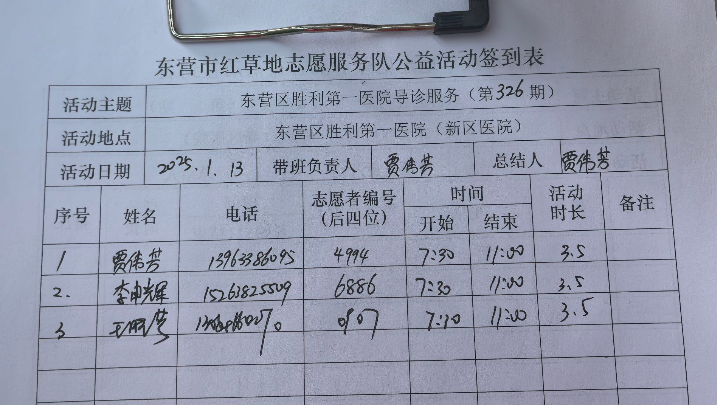 东营市红草地志愿服务队公益活动签到表
活动主题 东营区胜利第一医院导诊服务（第326期）
活动地点 东营区胜利第一医院（新区医院）
活动日期 2025.1.13 带班负责人 贾伟芳 总结人 贾伟芳
序号 姓名 电话 志愿者编号（后四位） 时间 开始 结束 活动时长 备注
1 贾伟芳 13963386095 4994 7:30 11:00 3.5
2. 李 辉 15261825509 6886 7:30 11:00 3.5
3 王 7:30 11:00 3.5